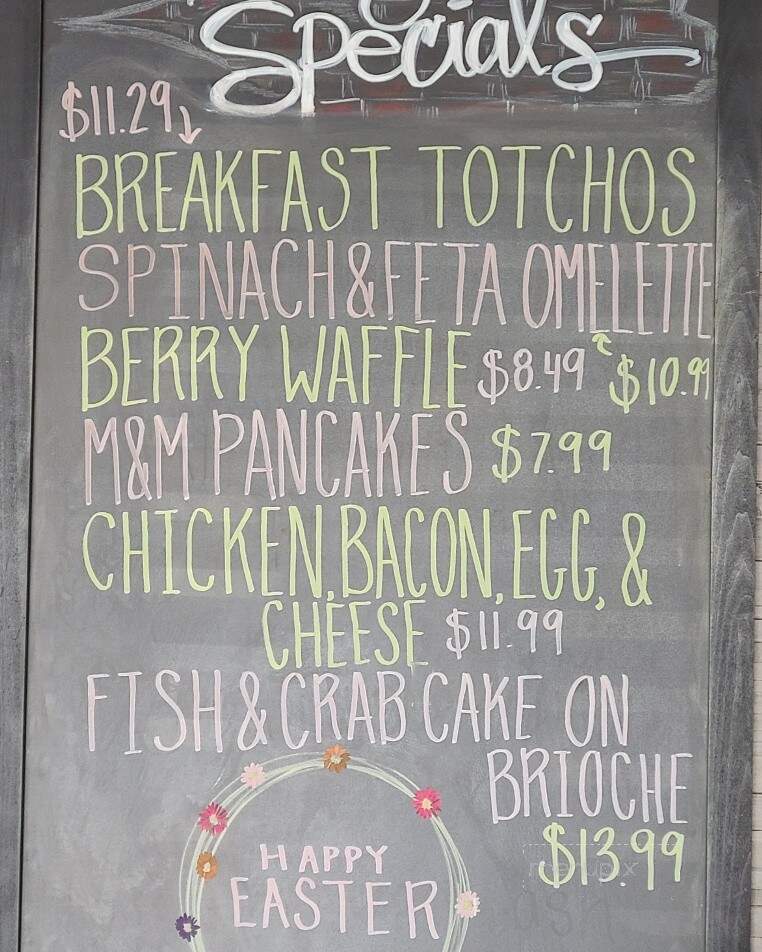 Specials
$11.29
BREAKFAST TOTCHOS
SPINACH & FETA OMELETTE
BERRY WAFFLE $8.49 $10.99
M&M PANCAKES $7.99
CHICKEN, BACON, EGG, &
CHEESE $11.99
FISH & CRAB CAKE ON
BRIOCHE
$13.99
HAPPY
EASTER